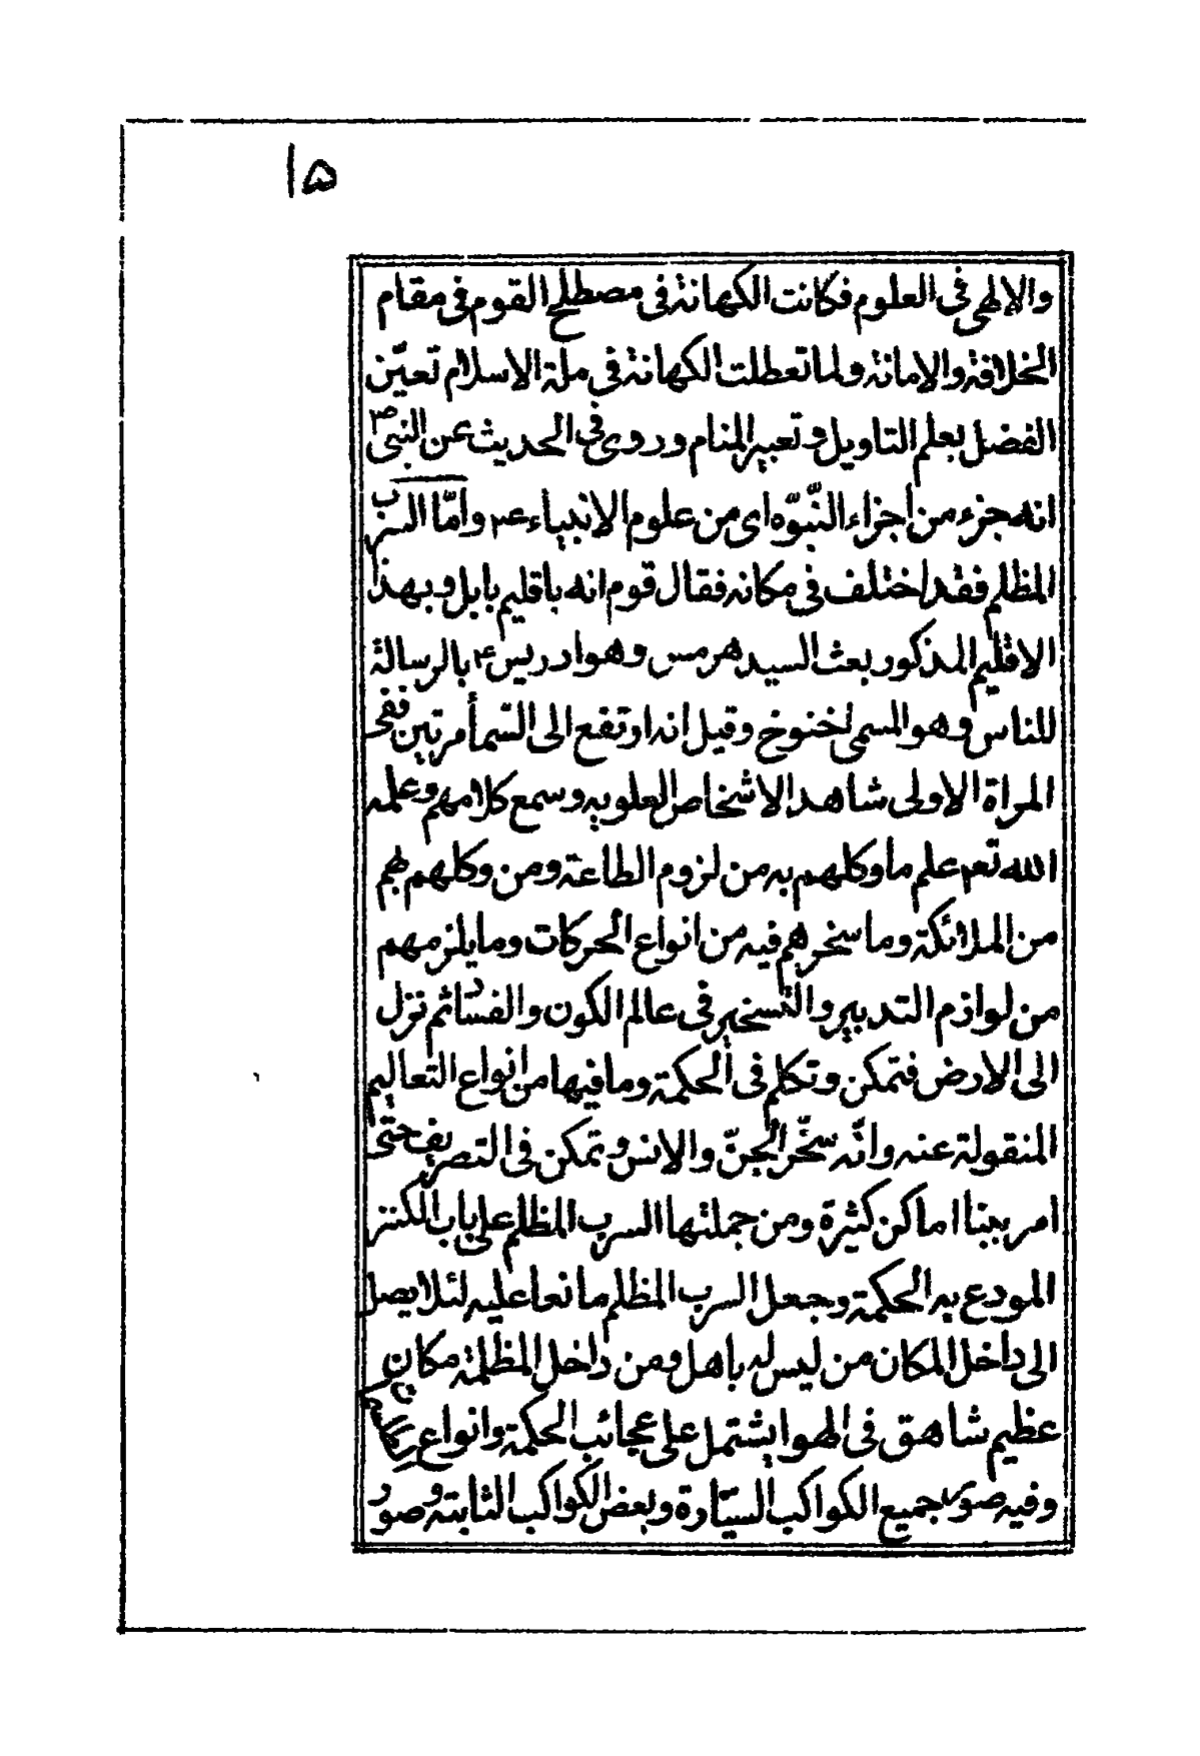 ١۵
والإلهى فى العلوم فكانت الكهانة فى مصطلح القوم فى مقام
الخلافة والامانة ولما تعطلت الكهانة فى ملة الاسلام تعيّن
الفضل بعلم التاويل وتعبير المنام وروى فى الحديث عن النبى ص
انه جزء من اجزاء النّبوّه اى من علوم الانبياء ع م وامّا السرب
المظلم فقد اختلف فى مكانه فقال قوم انه باقليم بابل وبهذا
الاقليم المذكور بعث السيد هرمس وهو ادريس ع بالرسالة
للناس وهو المسمى اخنوخ وقيل انه ارتفع الى السّمأ مرتين ففى
المراة الاولى شاهد الاشخاص العلويه وسمع كلامهم وعلمه
الله تعم علم ما وكلهم به من لزوم الطاعة ومن وكلهم بهم
من الملائكة وما سخرهم فيه من انواع الحركات وما يلزمهم
من لوازم التدبير والتسخير فى عالم الكون والفساد ثم نزل
الى الارض فتمكن وتكلم فى الحكمة وما فيها من انواع التعاليم
المنقولة عنه وانّه سخّر الجنّ والانس وتمكن فى التصريف حتى
امر ببنا اماكن كثيرة ومن جملتها السرب المظلم على باب الكنز
المودع به الحكمة وجعل السرب المظلم مانعا عليه لئلا يصل
الى داخل المكان من ليس له باهل ومن داخل المظلمة مكان
عظيم شاهق فى الهوا يشتمل على عجائب الحكمة وانواع
وفيه صور جميع الكواكب السيّارة وبعض الكواكب الثابتة وصور